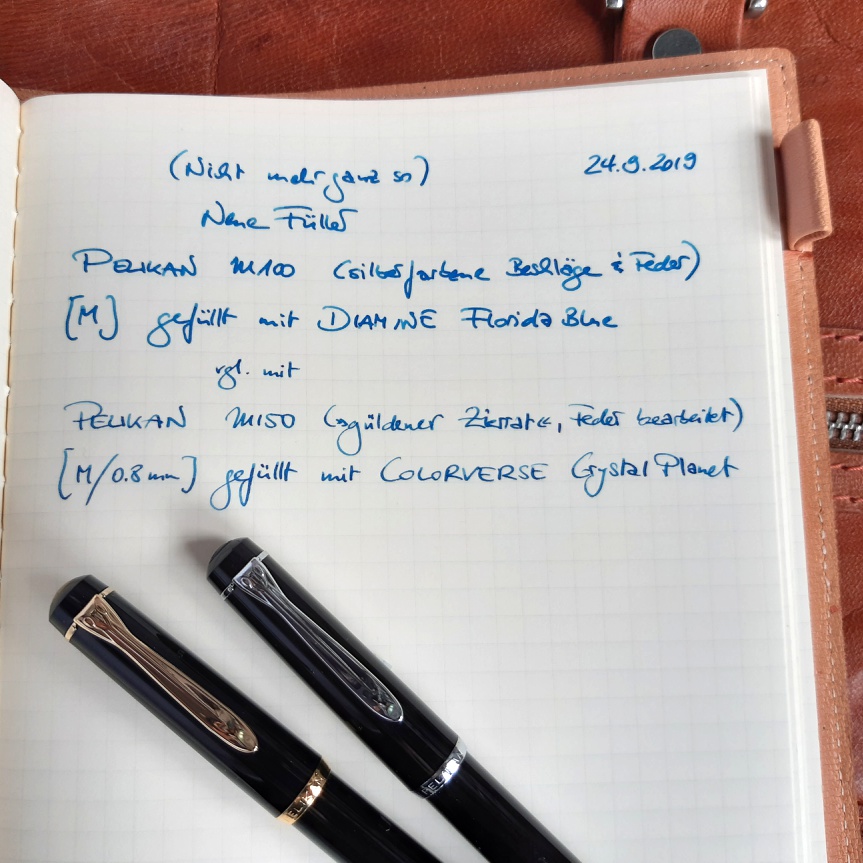 (Nicht mehr ganz so) 24.9.2019
Neue Füller
PELIKAN M100 (silberfarbene Beschläge & Feder)
[M] gefüllt mit DIAMINE Florida Blue
vgl. mit
PELIKAN M150 (»güldener Zierrat«, Feder bearbeitet)
[M/0.8 mm] gefüllt mit COLORVERSE Crystal Planet